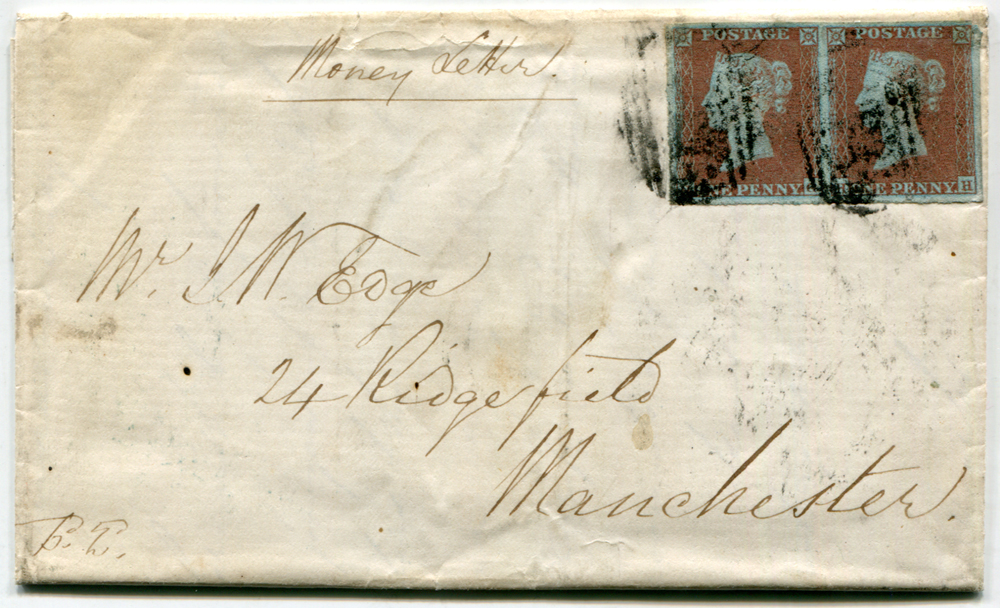 Money Letter.
POSTAGE POSTAGE
ONE PENNY ONE PENNY H
Mr. J. W. Edge
24 Ridgefield
Manchester.